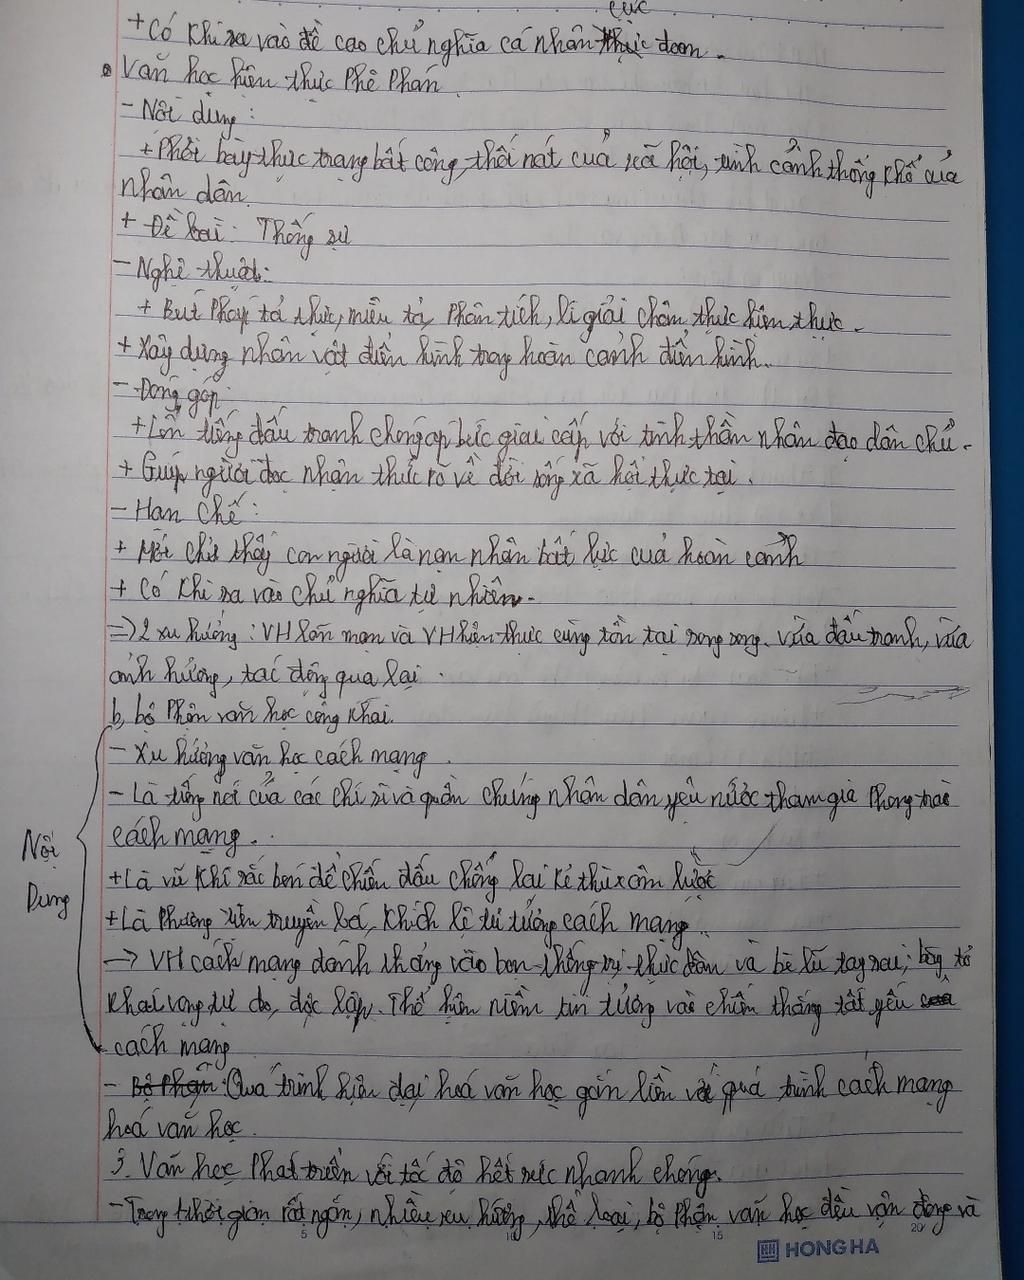 cực
+ Có khi sa vào đề cao chủ nghĩa cá nhân đoan.
• Văn học hiện thực phê phán
- Nội dung:
+ Phơi bày thực trạng bất công, thối nát của xã hội, tình cảnh thống khổ của
nhân dân.
+ Đề tài: Thống sự
- Nghệ thuật:
+ Bút pháp tả thực, miêu tả, phân tích, lí giải chân thực hiện thực.
+ Xây dựng nhân vật điển hình trong hoàn cảnh điển hình.
- Đóng góp:
+ Lên tiếng đấu tranh chống áp bức giai cấp với tinh thần nhân đạo dân chủ.
+ Giúp người đọc nhận thức rõ về đời sống xã hội thực tại.
- Hạn chế:
+ Mới chỉ thấy con người là nạn nhân bất lực của hoàn cảnh
+ Có khi sa vào chủ nghĩa tự nhiên.
=> 2 xu hướng: VH lãng mạn và VH hiện thực cùng tồn tại song song. vừa đấu tranh, vừa
ảnh hưởng, tác động qua lại.
b, bộ phận văn học công khai.
- Xu hướng văn học cách mạng.
- Là tiếng nói của các chí sĩ và quần chúng nhân dân yêu nước tham gia phong trào
cách mạng.
+ Là vũ khí sắc bén để chiến đấu chống lại kẻ thù xâm lược
+ Là phương tiện truyền bá, khích lệ tư tưởng cách mạng.
Nội
Dung
-> VH cách mạng đánh thẳng vào bọn thống trị thực dân và bè lũ tay sai, bày tỏ
khát vọng tự do, độc lập. Thể hiện niềm tin tưởng vào chiến thắng tất yếu của
cách mạng
- Bộ phận: Quá trình hiện đại hoá văn học gắn liền với quá trình cách mạng
hoá văn học.
3. Văn học phát triển với tốc độ hết sức nhanh chóng.
- Trong thời gian rất ngắn, nhiều xu hướng, thể loại, bộ phận văn học đều vận động và
5 10 15 20
HONG HA